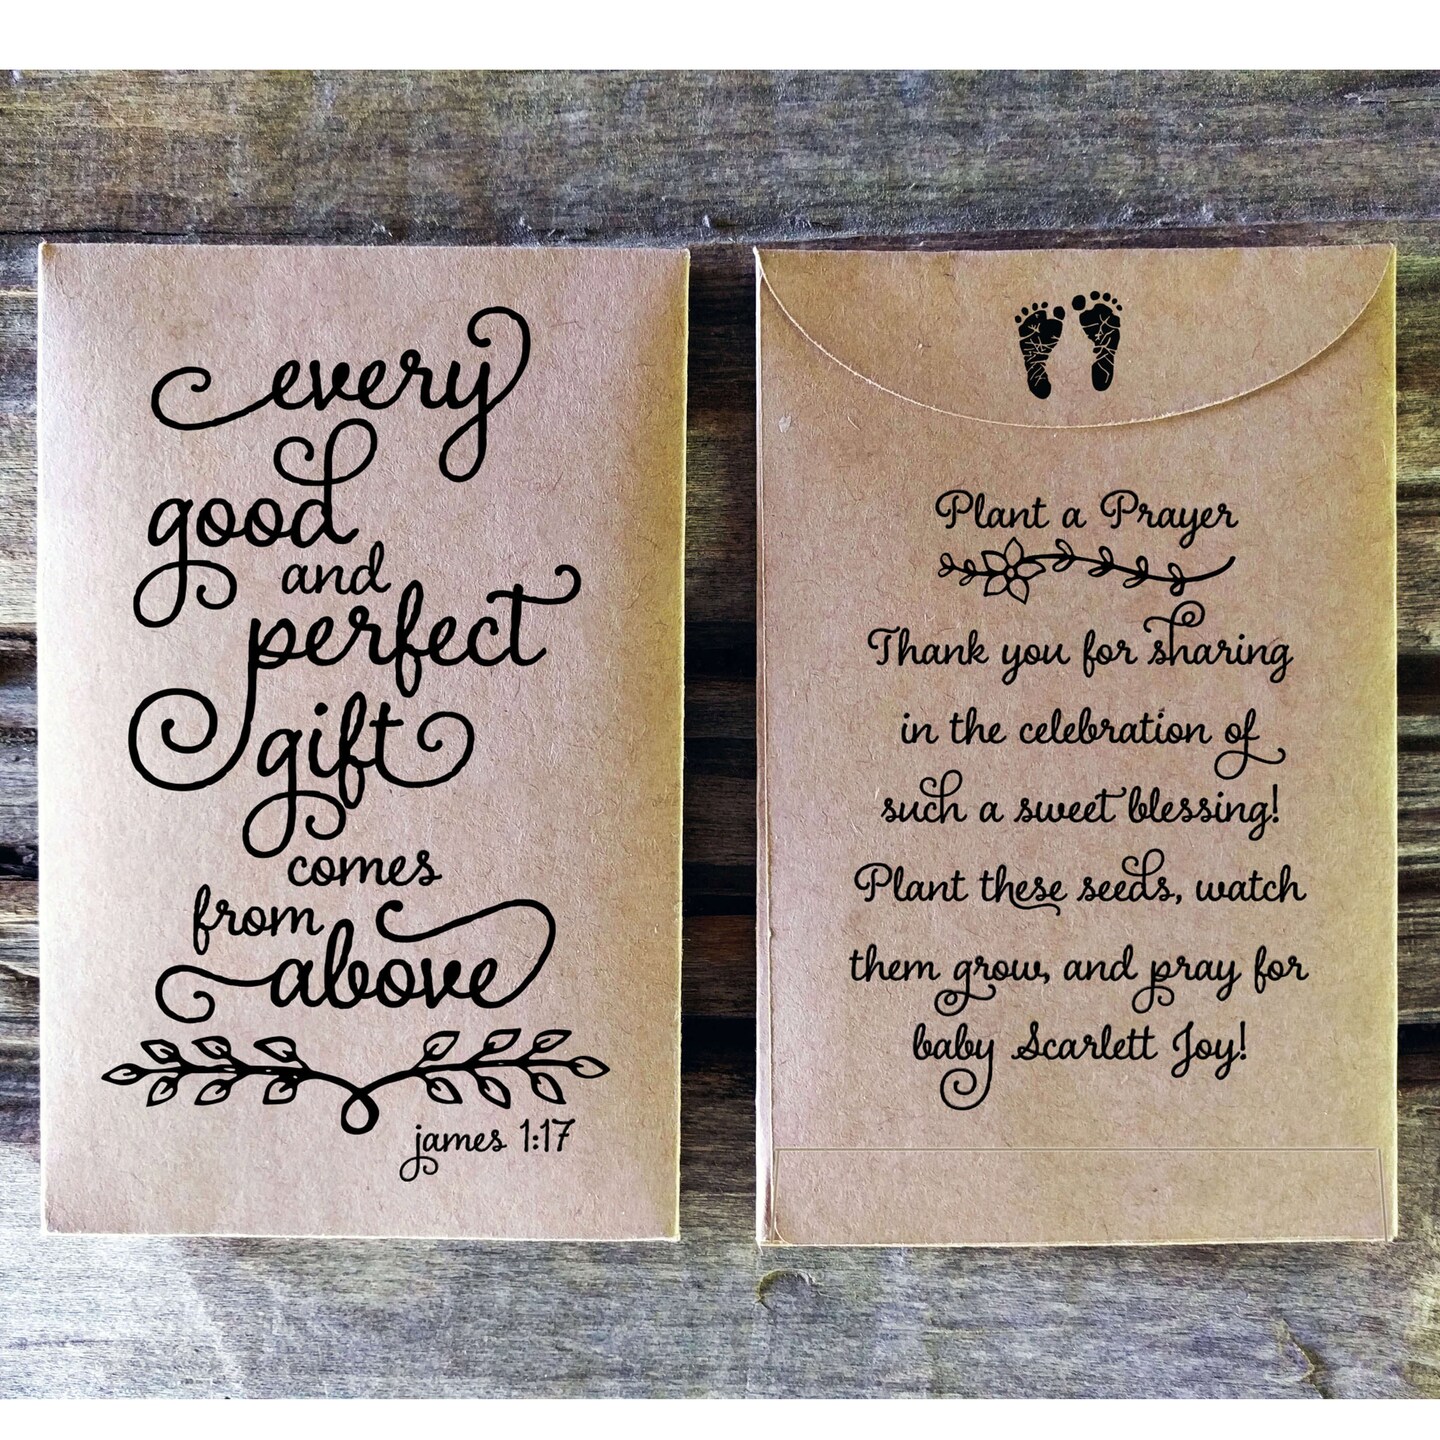 every
good
and
perfect
gift
comes
from
above
james 1:17
Plant a Prayer
Thank you for sharing
in the celebration of
such a sweet blessing!
Plant these seeds, watch
them grow, and pray for
baby Scarlett Joy!